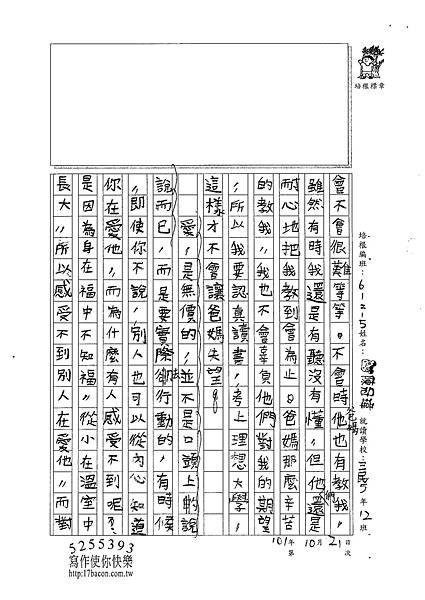 培根標章
會不會很難等等。不會時爸媽他也有教我,
雖然有時我還是有聽沒有懂,但他們還是
耐心地把我教到會為止。爸媽那麼辛苦
的教我,我也不會辜負他們對我的期望
,所以我要認真讀書,考上理想大學,
這樣才不會讓爸媽失望。
愛,是無價的,並不是口頭上的說
說而已,而是要實際行動的,有時候
,即使你不說,別人也可以從內心知道
你在愛他,而為什麼有人感受不到呢?
是因為身在福中不知福,從小在溫室中
長大,所以感受不到別人在愛他,而對
培根編班:61215姓名:
就讀學校: 年12班
101年10月21日
第 次
5255393
寫作使你快樂
http://17bacon.com.tw